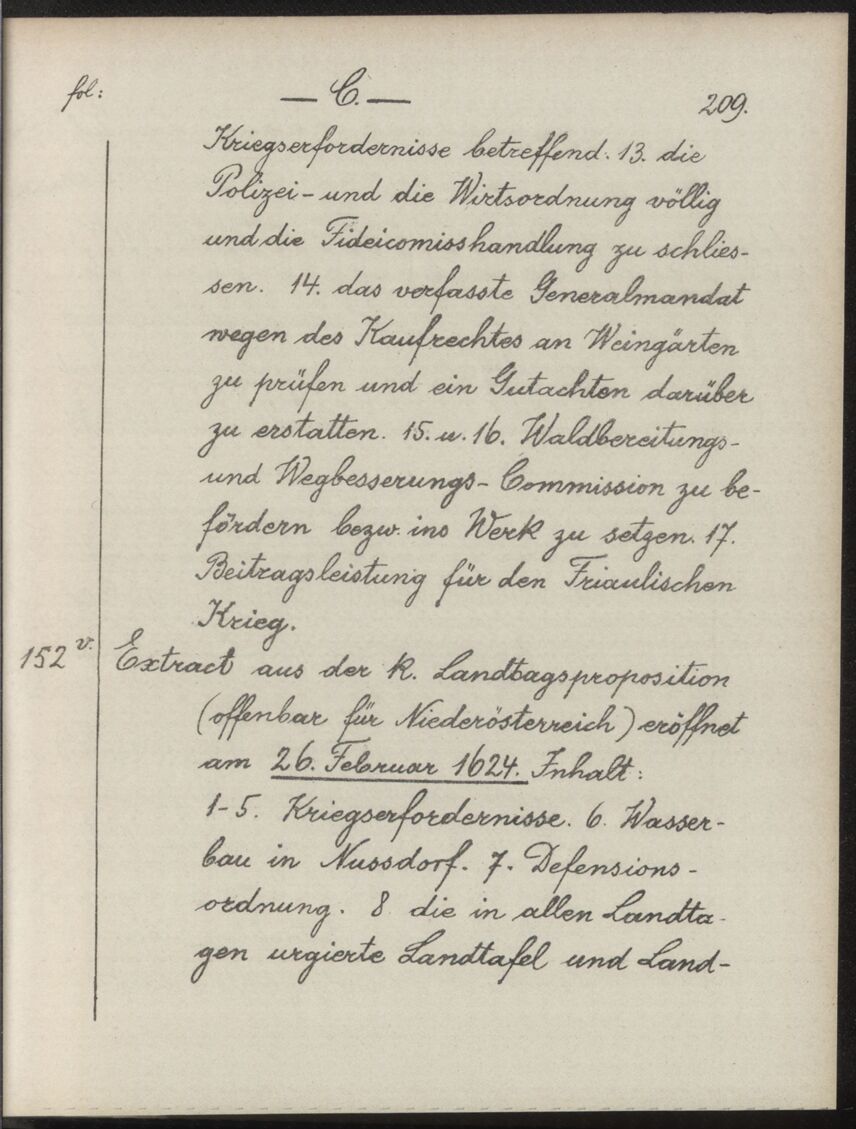 fol: — C. — 209.
Kriegserfordernisse betreffend. 13. die
Polizei- und die Wirtsordnung völlig
und die Fideicomisshandlung zu schlies-
sen. 14. das verfasste Generalmandat
wegen des Kaufrechtes an Weingärten
zu prüfen und ein Gutachten darüber
zu erstatten. 15. u. 16. Waldbereitungs-
und Wegbesserungs-Commission zu be-
fördern bezw. ins Werk zu setzen. 17.
Beitragsleistung für den Friaulischen
Krieg.
152 v. Extract aus der k. Landtagsproposition
(offenbar für Niederösterreich) eröffnet
am 26. Februar 1624. Inhalt:
1-5. Kriegserfordernisse. 6. Wasser-
bau in Nussdorf. 7. Defensions-
ordnung. 8 die in allen Landta-
gen urgierte Landtafel und Land-